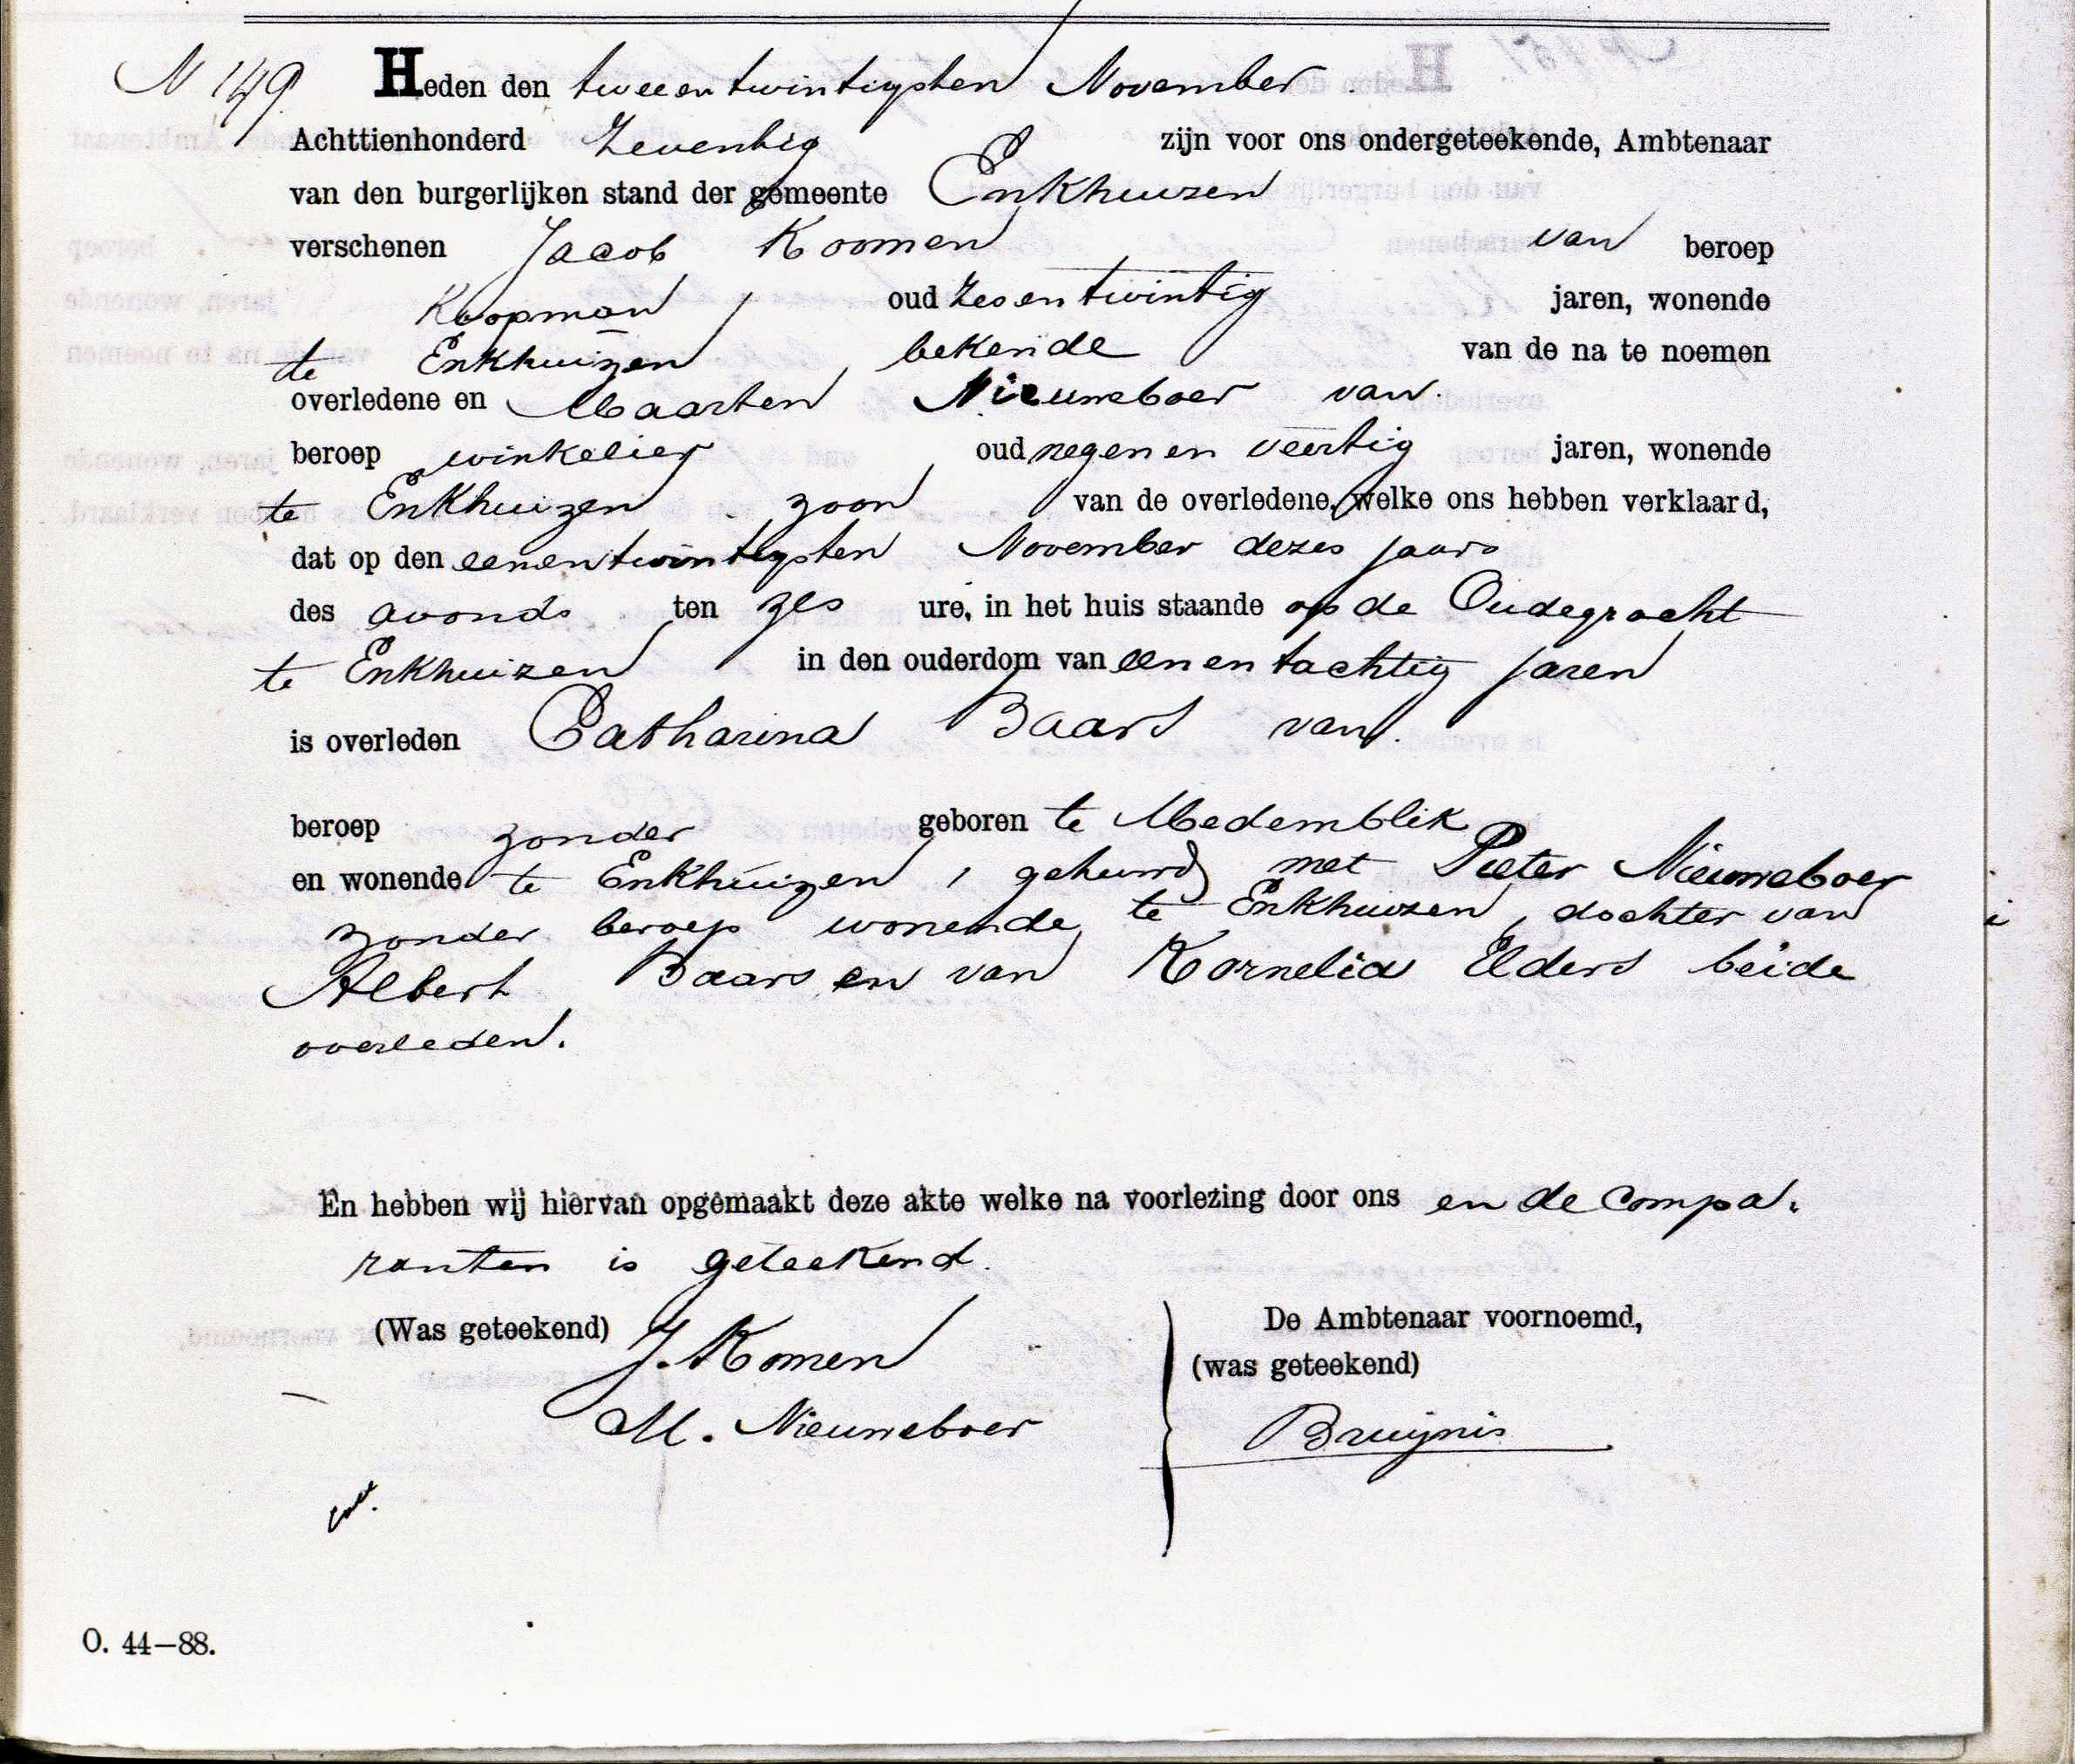 N 149 Heden den tweeentwintigsten November
Achttienhonderd Zeventig zijn voor ons ondergeteekende, Ambtenaar
van den burgerlijken stand der gemeente Enkhuizen
verschenen Jacob Koomen van beroep
Koopman, oud Zesentwintig jaren, wonende
te Enkhuizen, bekende van de na te noemen
overledene en Maarten Nieuweboer van
beroep winkelier, oud negen en veertig jaren, wonende
te Enkhuizen, zoon van de overledene, welke ons hebben verklaard,
dat op den eenentwintigsten November dezes jaars
des avonds ten zes ure, in het huis staande op de Oudegracht
te Enkhuizen in den ouderdom van eenentachtig jaren
is overleden Catharina Baars van
beroep zonder geboren te Medemblik
en wonende te Enkhuizen, gehuwd met Pieter Nieuweboer
zonder beroep wonende te Enkhuizen, dochter van
Albert Baars en van Kornelia Elders beide
overleden.
En hebben wij hiervan opgemaakt deze akte welke na voorlezing door ons en de compa-
ranten is geteekend.
(Was geteekend) J. Komen
M. Nieuweboer
De Ambtenaar voornoemd,
(was geteekend)
Bruijnis
O. 44—88.